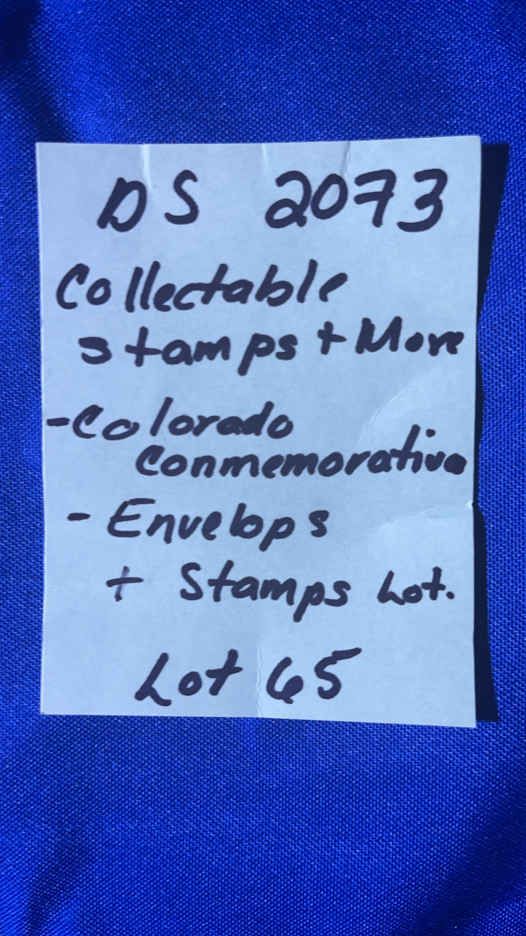 DS 2073
Collectable
stamps + More
- Colorado
Conmemorative
- Envelops
+ Stamps Lot.
Lot 65